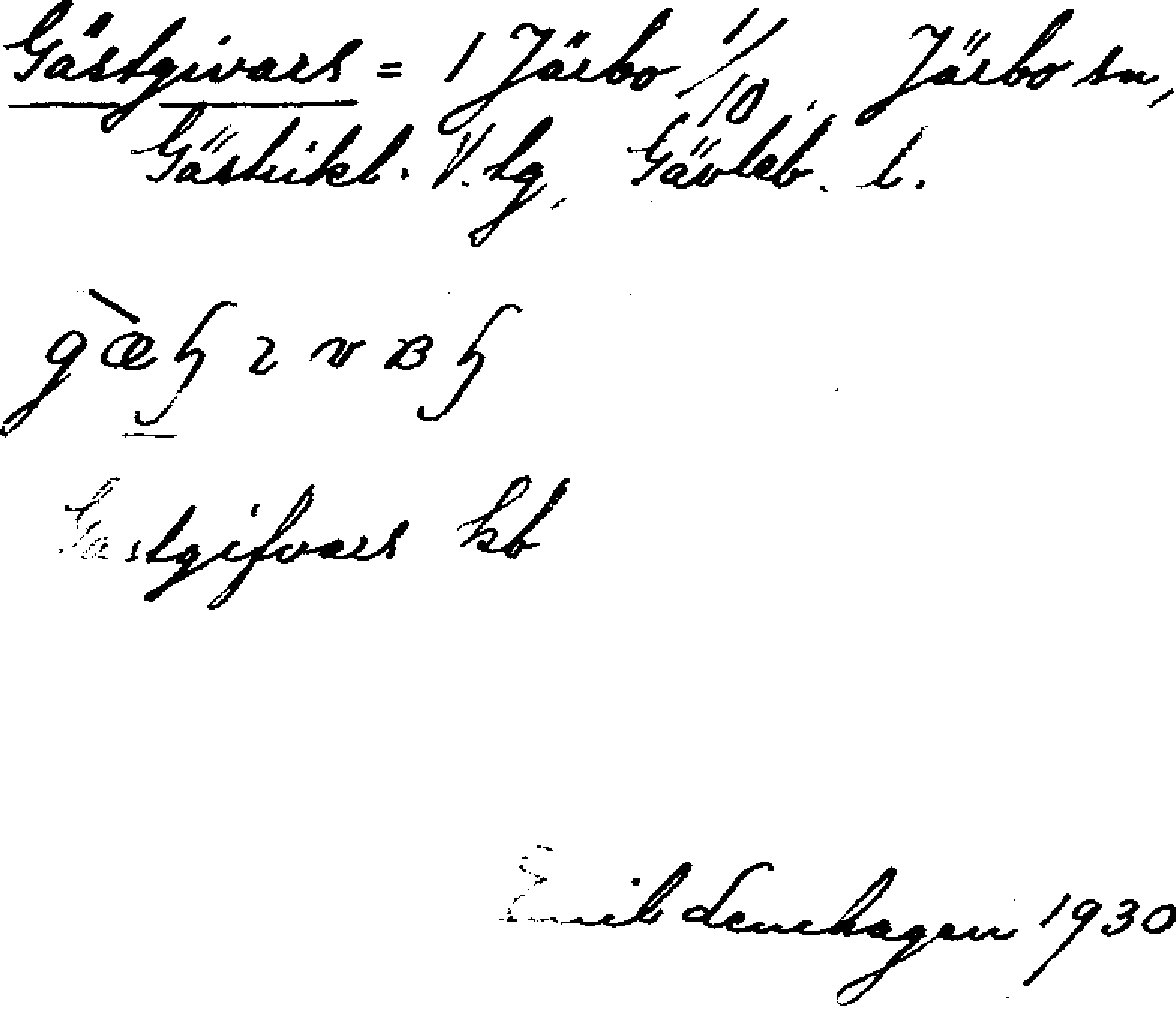 Gästgivars = 1 Järbo 1/10 Järbo sn,
Gästrikl. V. tg, Gävleb. l.
Gästgifvars kb
Emil Lenehagen 1930